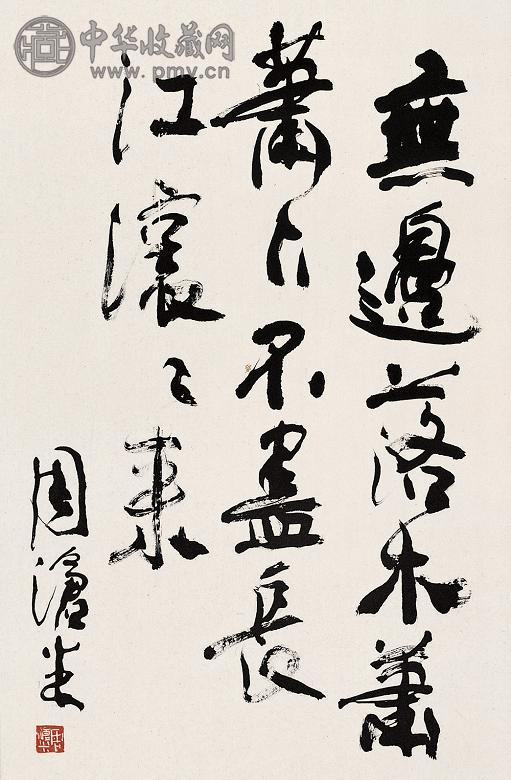 中华收藏网
www.pmv.cn
無邊落木蕭
蕭下不盡長
江滾〻來
周滄米